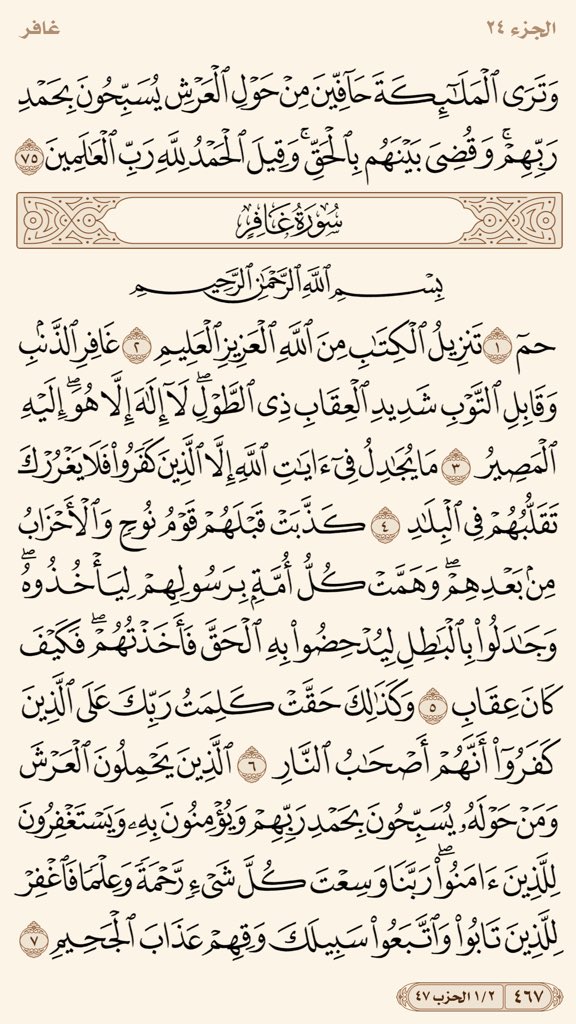 الجزء ٢٤ غافر
وَتَرَى ٱلْمَلَـٰٓئِكَةَ حَآفِّينَ مِنْ حَوْلِ ٱلْعَرْشِ يُسَبِّحُونَ بِحَمْدِ
رَبِّهِمْ ۚ وَقُضِىَ بَيْنَهُم بِٱلْحَقِّ ۚ وَقِيلَ ٱلْحَمْدُ لِلَّهِ رَبِّ ٱلْعَـٰلَمِينَ ٧٥
سُورَةُ غَافِرٍ
بِسْمِ ٱللَّهِ ٱلرَّحْمَـٰنِ ٱلرَّحِيمِ
حمٓ ١ تَنزِيلُ ٱلْكِتَـٰبِ مِنَ ٱللَّهِ ٱلْعَزِيزِ ٱلْعَلِيمِ ٢ غَافِرِ ٱلذَّنۢبِ
وَقَابِلِ ٱلتَّوْبِ شَدِيدِ ٱلْعِقَابِ ذِى ٱلطَّوْلِ ۖ لَآ إِلَـٰهَ إِلَّا هُوَ ۖ إِلَيْهِ
ٱلْمَصِيرُ ٣ مَا يُجَـٰدِلُ فِىٓ ءَايَـٰتِ ٱللَّهِ إِلَّا ٱلَّذِينَ كَفَرُوا۟ فَلَا يَغْرُرْكَ
تَقَلُّبُهُمْ فِى ٱلْبِلَـٰدِ ٤ كَذَّبَتْ قَبْلَهُمْ قَوْمُ نُوحٍ وَٱلْأَحْزَابُ
مِنۢ بَعْدِهِمْ ۖ وَهَمَّتْ كُلُّ أُمَّةٍۭ بِرَسُولِهِمْ لِيَأْخُذُوهُ ۖ
وَجَـٰدَلُوا۟ بِٱلْبَـٰطِلِ لِيُدْحِضُوا۟ بِهِ ٱلْحَقَّ فَأَخَذْتُهُمْ ۖ فَكَيْفَ
كَانَ عِقَابِ ٥ وَكَذَٰلِكَ حَقَّتْ كَلِمَتُ رَبِّكَ عَلَى ٱلَّذِينَ
كَفَرُوٓا۟ أَنَّهُمْ أَصْحَـٰبُ ٱلنَّارِ ٦ ٱلَّذِينَ يَحْمِلُونَ ٱلْعَرْشَ
وَمَنْ حَوْلَهُۥ يُسَبِّحُونَ بِحَمْدِ رَبِّهِمْ وَيُؤْمِنُونَ بِهِۦ وَيَسْتَغْفِرُونَ
لِلَّذِينَ ءَامَنُوا۟ ۖ رَبَّنَا وَسِعْتَ كُلَّ شَىْءٍ رَّحْمَةً وَعِلْمًا فَٱغْفِرْ
لِلَّذِينَ تَابُوا۟ وَٱتَّبَعُوا۟ سَبِيلَكَ وَقِهِمْ عَذَابَ ٱلْجَحِيمِ ٧
٤٦٧ ١/٢ الحزب ٤٧